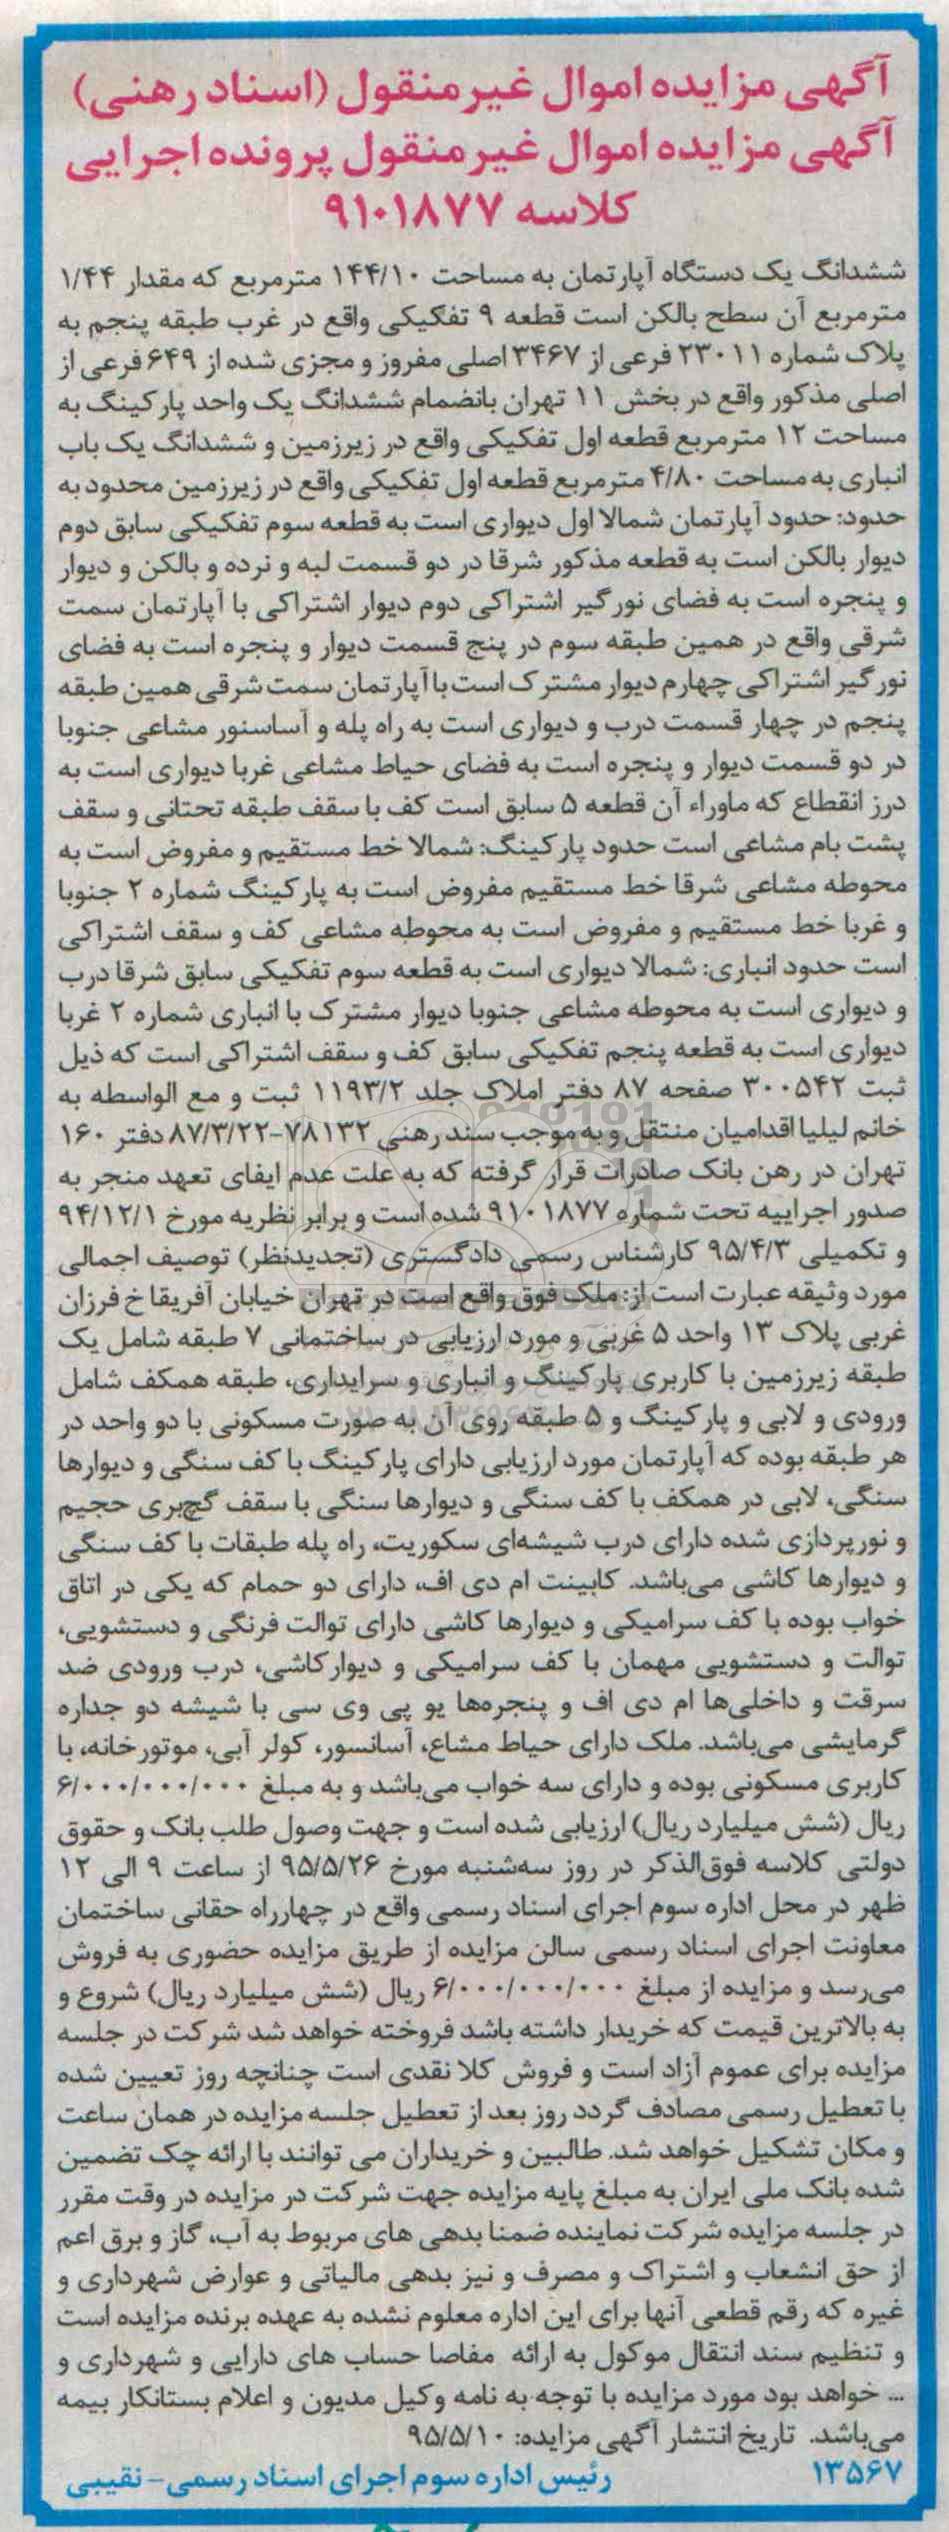 آگهی مزایده اموال غیرمنقول (اسناد رهنی)
آگهی مزایده اموال غیرمنقول پرونده اجرایی
کلاسه ۹۱۰۱۸۷۷
ششدانگ یک دستگاه آپارتمان به مساحت ۱۴۴/۱۰ مترمربع که مقدار ۱/۴۴
مترمربع آن سطح بالکن است قطعه ۹ تفکیکی واقع در غرب طبقه پنجم به
پلاک شماره ۲۳۰۱۱ فرعی از ۳۴۶۷ اصلی مفروز و مجزی شده از ۶۴۹ فرعی از
اصلی مذکور واقع در بخش ۱۱ تهران بانضمام ششدانگ یک واحد پارکینگ به
مساحت ۱۲ مترمربع قطعه اول تفکیکی واقع در زیرزمین و ششدانگ یک باب
انباری به مساحت ۴/۸۰ مترمربع قطعه اول تفکیکی واقع در زیرزمین محدود به
حدود: حدود آپارتمان شمالا اول دیواری است به قطعه سوم تفکیکی سابق دوم
دیوار بالکن است به قطعه مذکور شرقا در دو قسمت لبه و نرده و بالکن و دیوار
و پنجره است به فضای نورگیر اشتراکی دوم دیوار اشتراکی با آپارتمان سمت
شرقی واقع در همین طبقه سوم در پنج قسمت دیوار و پنجره است به فضای
نورگیر اشتراکی چهارم دیوار مشترک است با آپارتمان سمت شرقی همین طبقه
پنجم در چهار قسمت درب و دیواری است به راه پله و آساسنور مشاعی جنوبا
در دو قسمت دیوار و پنجره است به فضای حیاط مشاعی غربا دیواری است به
درز انقطاع که ماوراء آن قطعه ۵ سابق است کف با سقف طبقه تحتانی و سقف
پشت بام مشاعی است حدود پارکینگ: شمالا خط مستقیم و مفروض است به
محوطه مشاعی شرقا خط مستقیم مفروض است به پارکینگ شماره ۲ جنوبا
و غربا خط مستقیم و مفروض است به محوطه مشاعی کف و سقف اشتراکی
است حدود انباری: شمالا دیواری است به قطعه سوم تفکیکی سابق شرقا درب
و دیواری است به محوطه مشاعی جنوبا دیوار مشترک با انباری شماره ۲ غربا
دیواری است به قطعه پنجم تفکیکی سابق کف و سقف اشتراکی است که ذیل
ثبت ۳۰۰۵۴۲ صفحه ۸۷ دفتر املاک جلد ۱۱۹۳/۲ ثبت و مع الواسطه به
خانم لیلیا اقدامیان منتقل و به موجب سند رهنی ۷۸۱۳۲-۸۷/۳/۲۲ دفتر ۱۶۰
تهران در رهن بانک صادرات قرار گرفته که به علت عدم ایفای تعهد منجر به
صدور اجراییه تحت شماره ۹۱۰۱۸۷۷ شده است و برابر نظریه مورخ ۹۴/۱۲/۱
و تکمیلی ۹۵/۴/۳ کارشناس رسمی دادگستری (تجدیدنظر) توصیف اجمالی
مورد وثیقه عبارت است از: ملک فوق واقع است در تهران خیابان آفریقا خ فرزان
غربی پلاک ۱۳ واحد ۵ غربی و مورد ارزیابی در ساختمانی ۷ طبقه شامل یک
طبقه زیرزمین با کاربری پارکینگ و انباری و سرایداری، طبقه همکف شامل
ورودی و لابی و پارکینگ و ۵ طبقه روی آن به صورت مسکونی با دو واحد در
هر طبقه بوده که آپارتمان مورد ارزیابی دارای پارکینگ با کف سنگی و دیوارها
سنگی، لابی در همکف با کف سنگی و دیوارها سنگی با سقف گچبری حجیم
و نورپردازی شده دارای درب شیشه‌ای سکوریت، راه پله طبقات با کف سنگی
و دیوارها کاشی می‌باشد. کابینت ام دی اف، دارای دو حمام که یکی در اتاق
خواب بوده با کف سرامیکی و دیوارها کاشی دارای توالت فرنگی و دستشویی،
توالت و دستشویی مهمان با کف سرامیکی و دیوار کاشی، درب ورودی ضد
سرقت و داخلی‌ها ام دی اف و پنجره‌ها یو پی وی سی با شیشه دو جداره
گرمایشی می‌باشد. ملک دارای حیاط مشاع، آسانسور، کولر آبی، موتورخانه، با
کاربری مسکونی بوده و دارای سه خواب می‌باشد و به مبلغ ۶/۰۰۰/۰۰۰/۰۰۰
ریال (شش میلیارد ریال) ارزیابی شده است و جهت وصول طلب بانک و حقوق
دولتی کلاسه فوق‌الذکر در روز سه‌شنبه مورخ ۹۵/۵/۲۶ از ساعت ۹ الی ۱۲
ظهر در محل اداره سوم اجرای اسناد رسمی واقع در چهارراه حقانی ساختمان
معاونت اجرای اسناد رسمی سالن مزایده از طریق مزایده حضوری به فروش
می‌رسد و مزایده از مبلغ ۶/۰۰۰/۰۰۰/۰۰۰ ریال (شش میلیارد ریال) شروع و
به بالاترین قیمت که خریدار داشته باشد فروخته خواهد شد شرکت در جلسه
مزایده برای عموم آزاد است و فروش کلا نقدی است چنانچه روز تعیین شده
با تعطیل رسمی مصادف گردد روز بعد از تعطیل جلسه مزایده در همان ساعت
و مکان تشکیل خواهد شد. طالبین و خریداران می توانند با ارائه چک تضمین
شده بانک ملی ایران به مبلغ پایه مزایده جهت شرکت در مزایده در وقت مقرر
در جلسه مزایده شرکت نماینده ضمنا بدهی های مربوط به آب، گاز و برق اعم
از حق انشعاب و اشتراک و مصرف و نیز بدهی مالیاتی و عوارض شهرداری و
غیره که رقم قطعی آنها برای این اداره معلوم نشده به عهده برنده مزایده است
و تنظیم سند انتقال موکول به ارائه مفاصا حساب های دارایی و شهرداری و
... خواهد بود مورد مزایده با توجه به نامه وکیل مدیون و اعلام بستانکار بیمه
می‌باشد. تاریخ انتشار آگهی مزایده: ۹۵/۵/۱۰
۱۳۵۶۷ رئیس اداره سوم اجرای اسناد رسمی- نقیبی